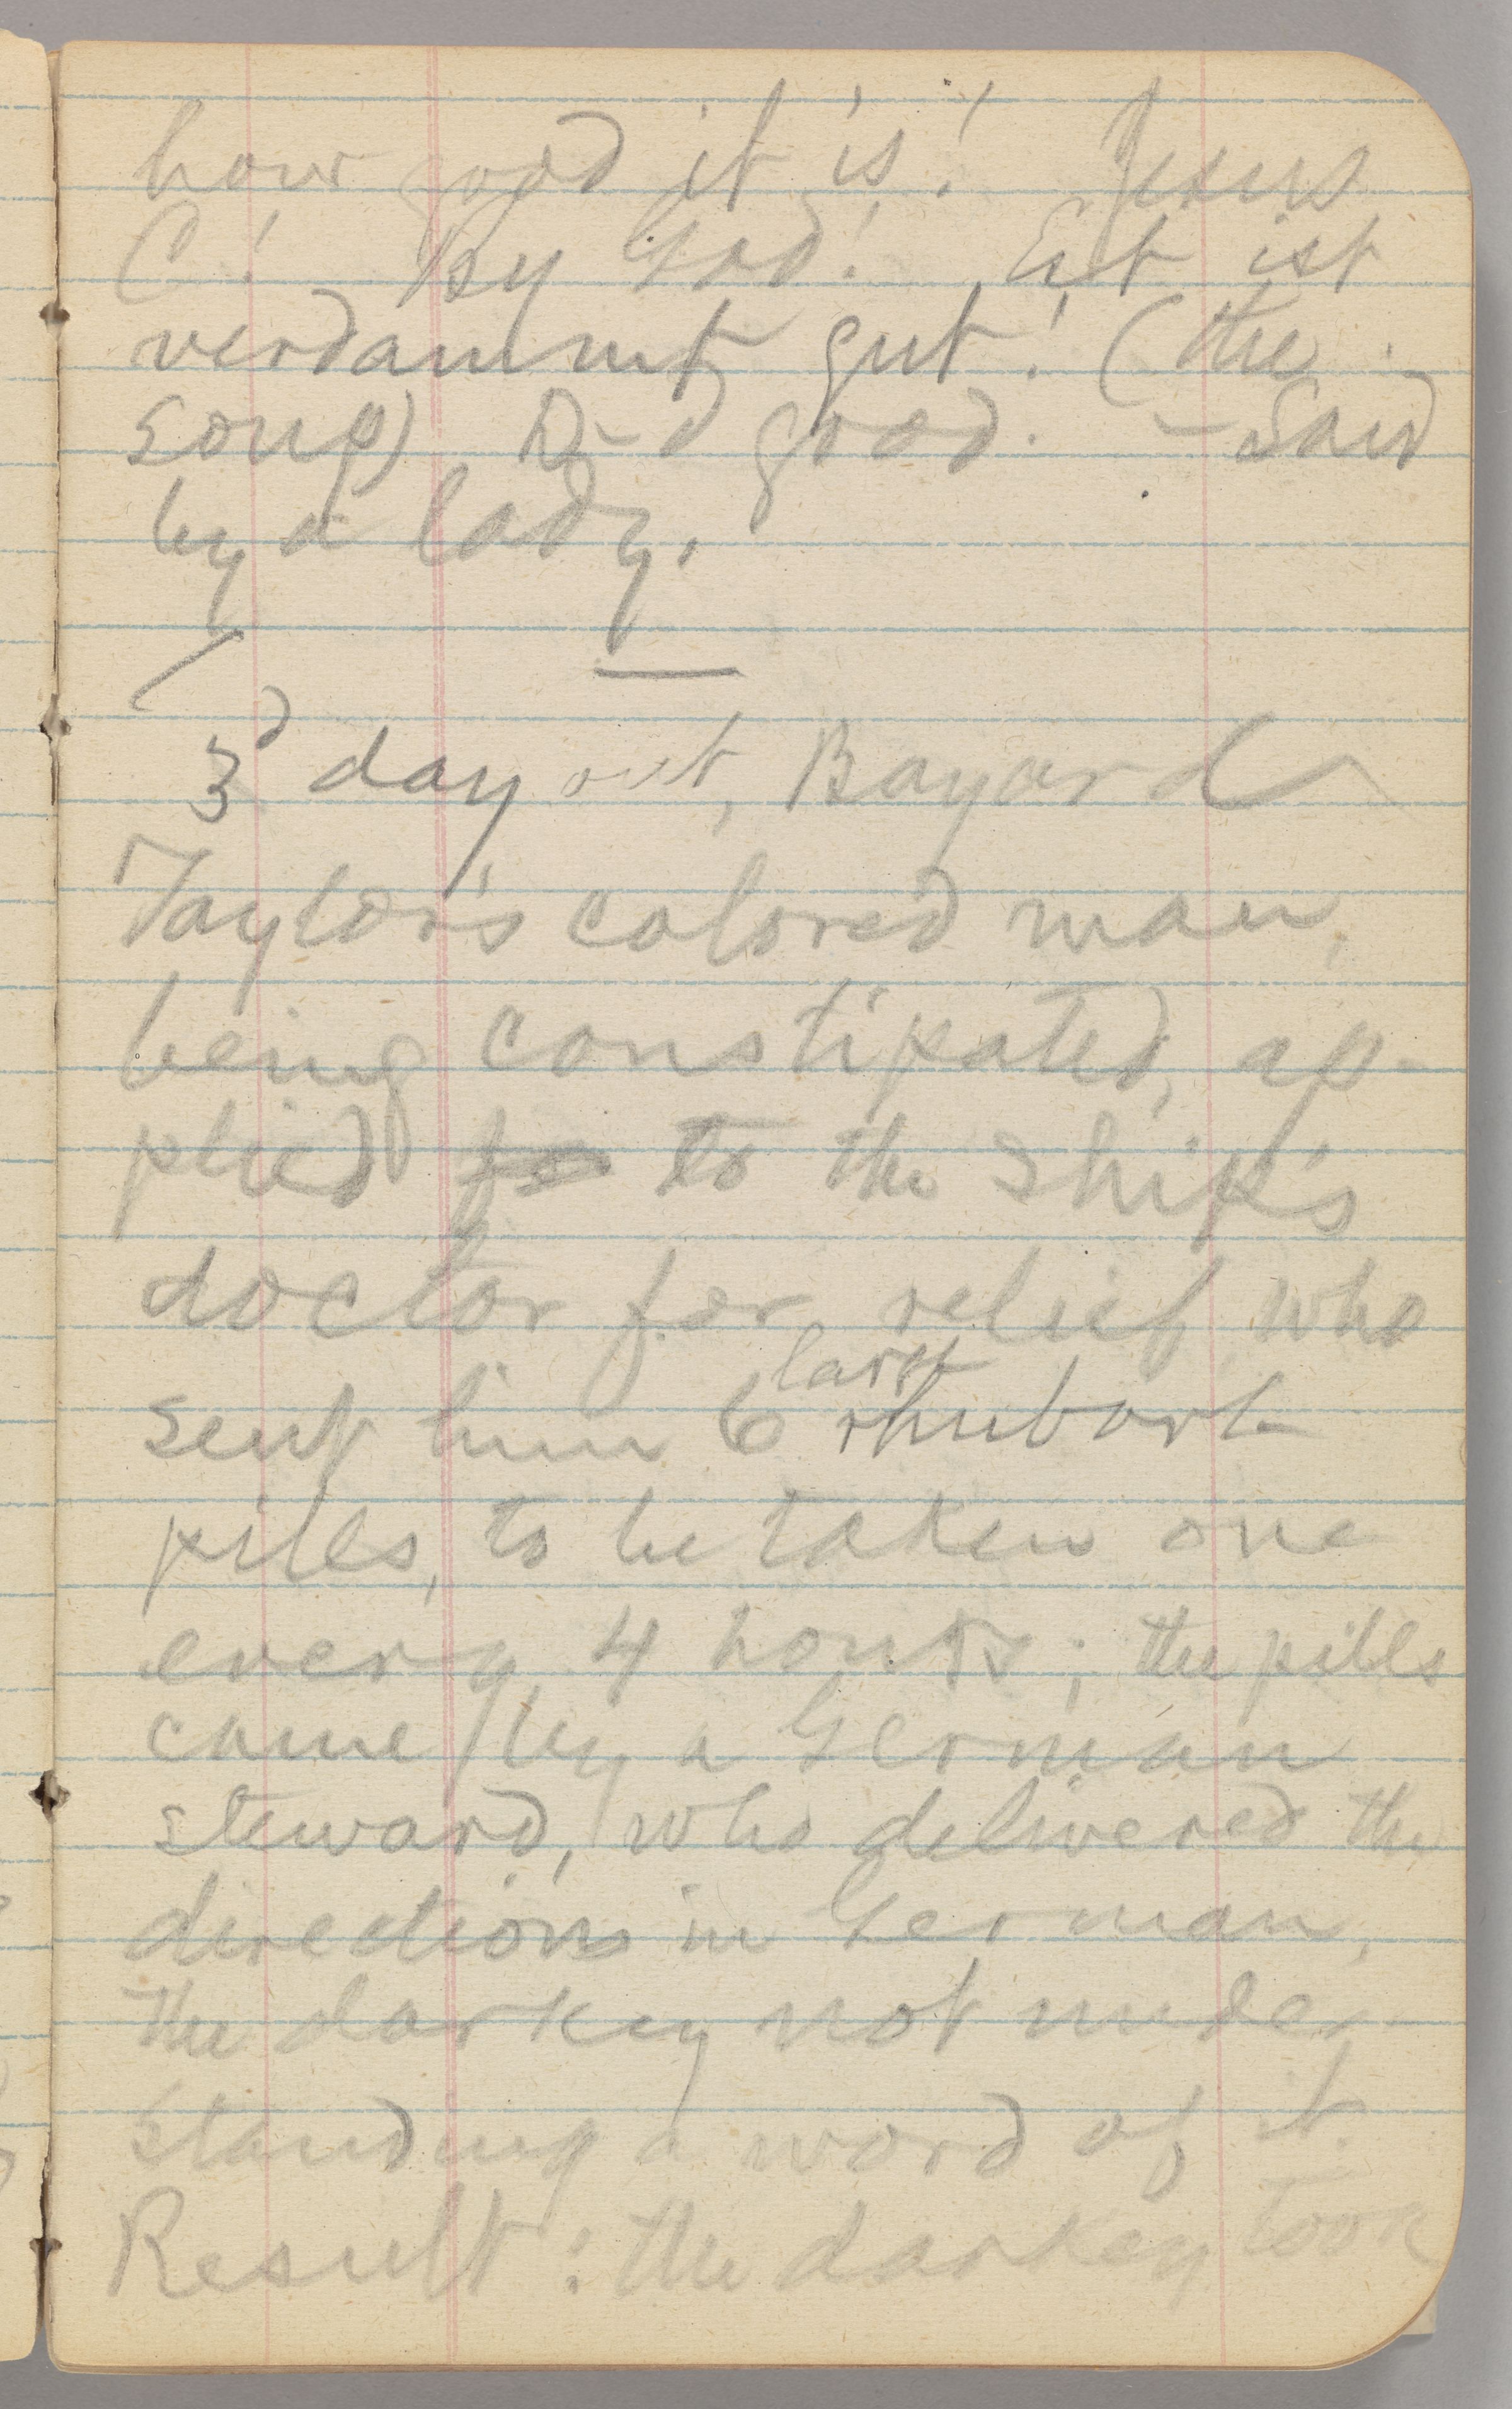 how good it is! Jesus
C! By God! Est ist
verdammt gut! (the
soup) D—d good. — Said
by a lady.
3d day out, Bayard
Taylor's colored man,
being constipated, ap-
plied to the ship's
doctor for relief who
large
sent him 6 rhubarb
pills, to be taken one
every 4 hours; the pills
came by a German
steward, who delivered the
directions in German,
the darkey not under-
standing a word of it.
Result: the darkey took